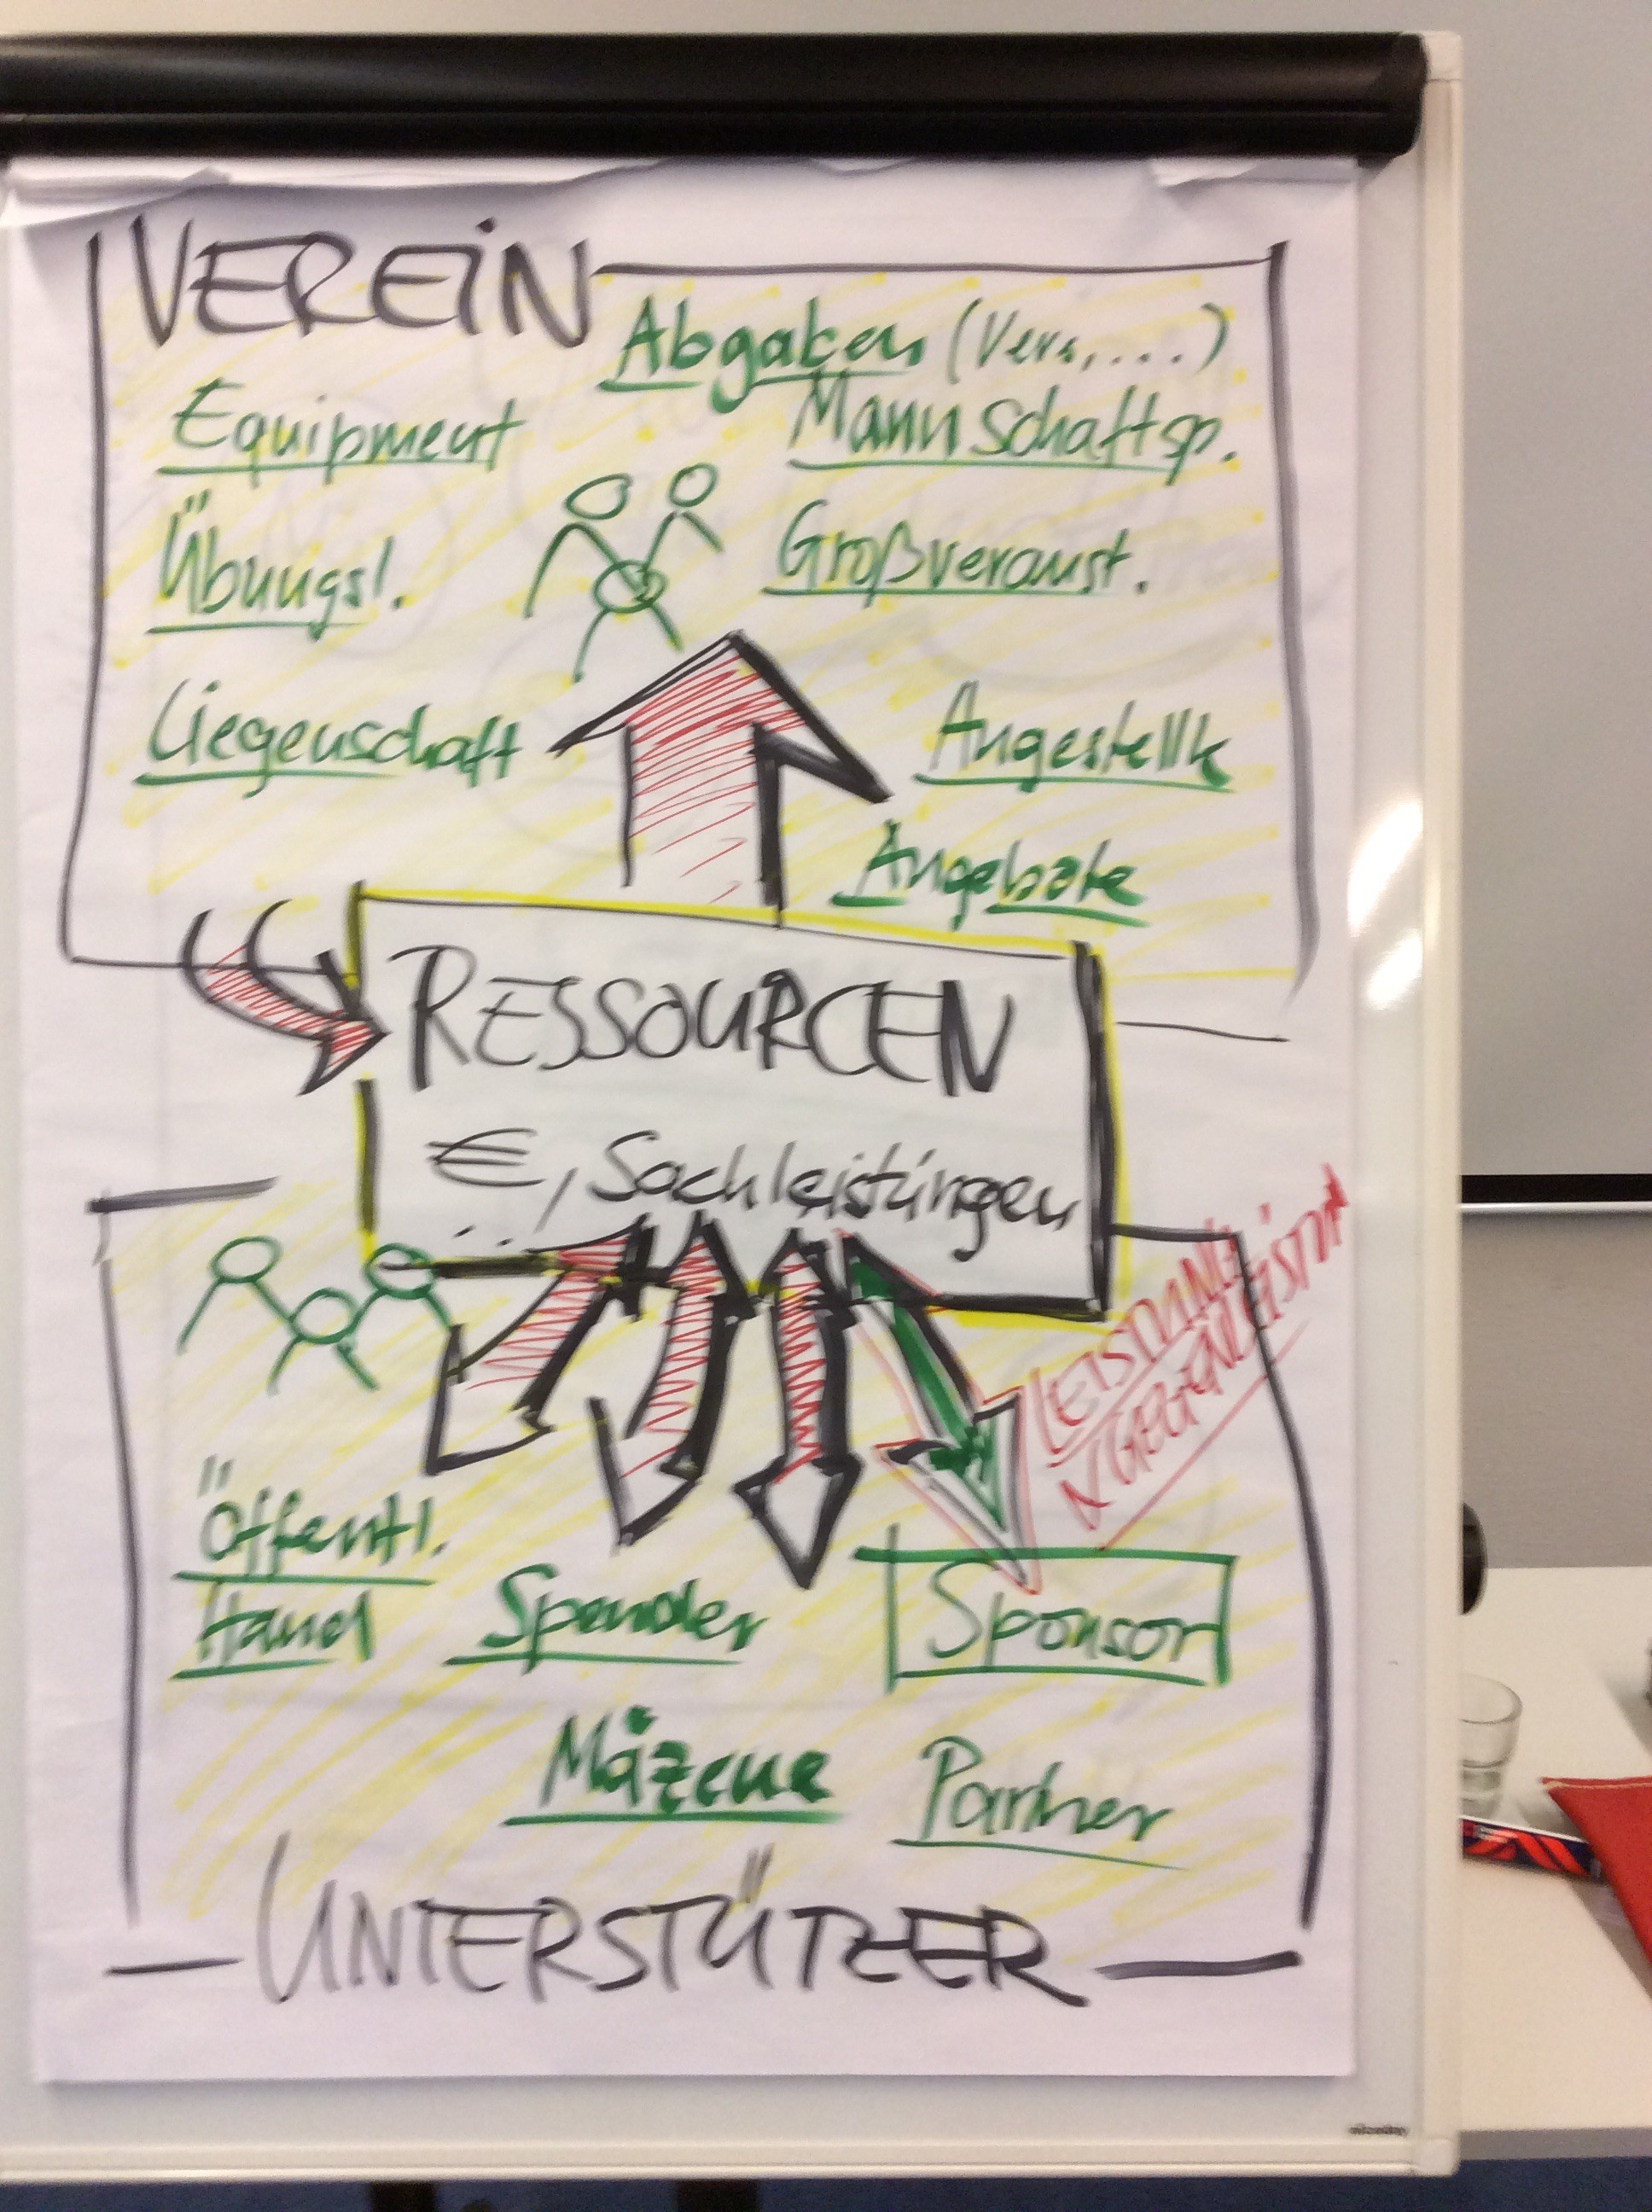 VEREIN
Abgaben (Vers, ...)
Equipment
Mannschaftsp.
Übungsl.
Großveranst.
Liegenschaft
Angestellte
Angebote
RESSOURCEN
€, Sachleistungen
...
LEISTUNG
GEGENLEISTUNG
Öffentl.
Hand
Spender
Sponsor
Mäzene
Partner
UNTERSTÜTZER